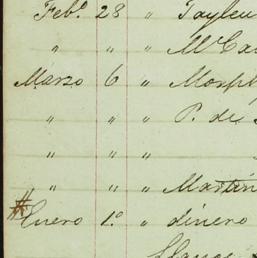 Feb.º 28 " Tayleu
" " " Mc Ca
Marzo 6 " Morph
" " " P. de
" " "
" " " Martin
# Enero 1.º " dinero